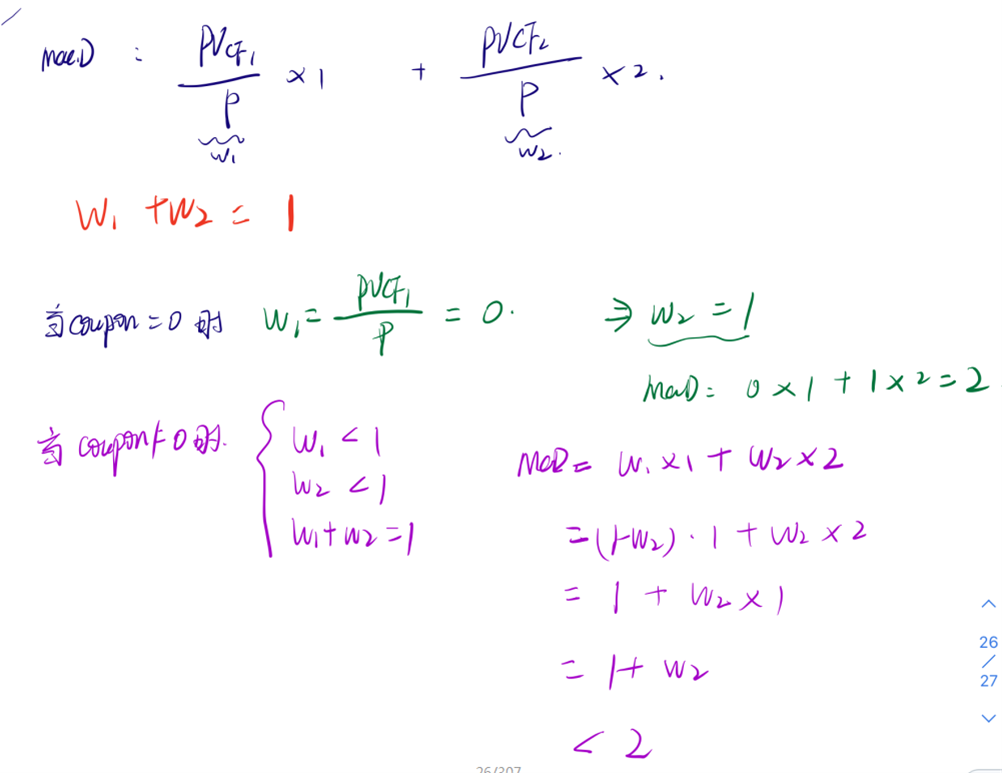 Mac.D : PVCF₁/P × 1 + PVCF₂/P × 2.
W₁ W₂.
W₁ + W₂ = 1
当 coupon = 0 时 W₁ = PVCF₁/P = 0. ⇒ W₂ = 1
MacD = 0 × 1 + 1 × 2 = 2
当 coupon ≠ 0 时. { W₁ < 1
W₂ < 1
W₁ + W₂ = 1
MacD = W₁ × 1 + W₂ × 2
= (1-W₂) · 1 + W₂ × 2
= 1 + W₂ × 1
= 1 + W₂
< 2
26
/
27
26/307